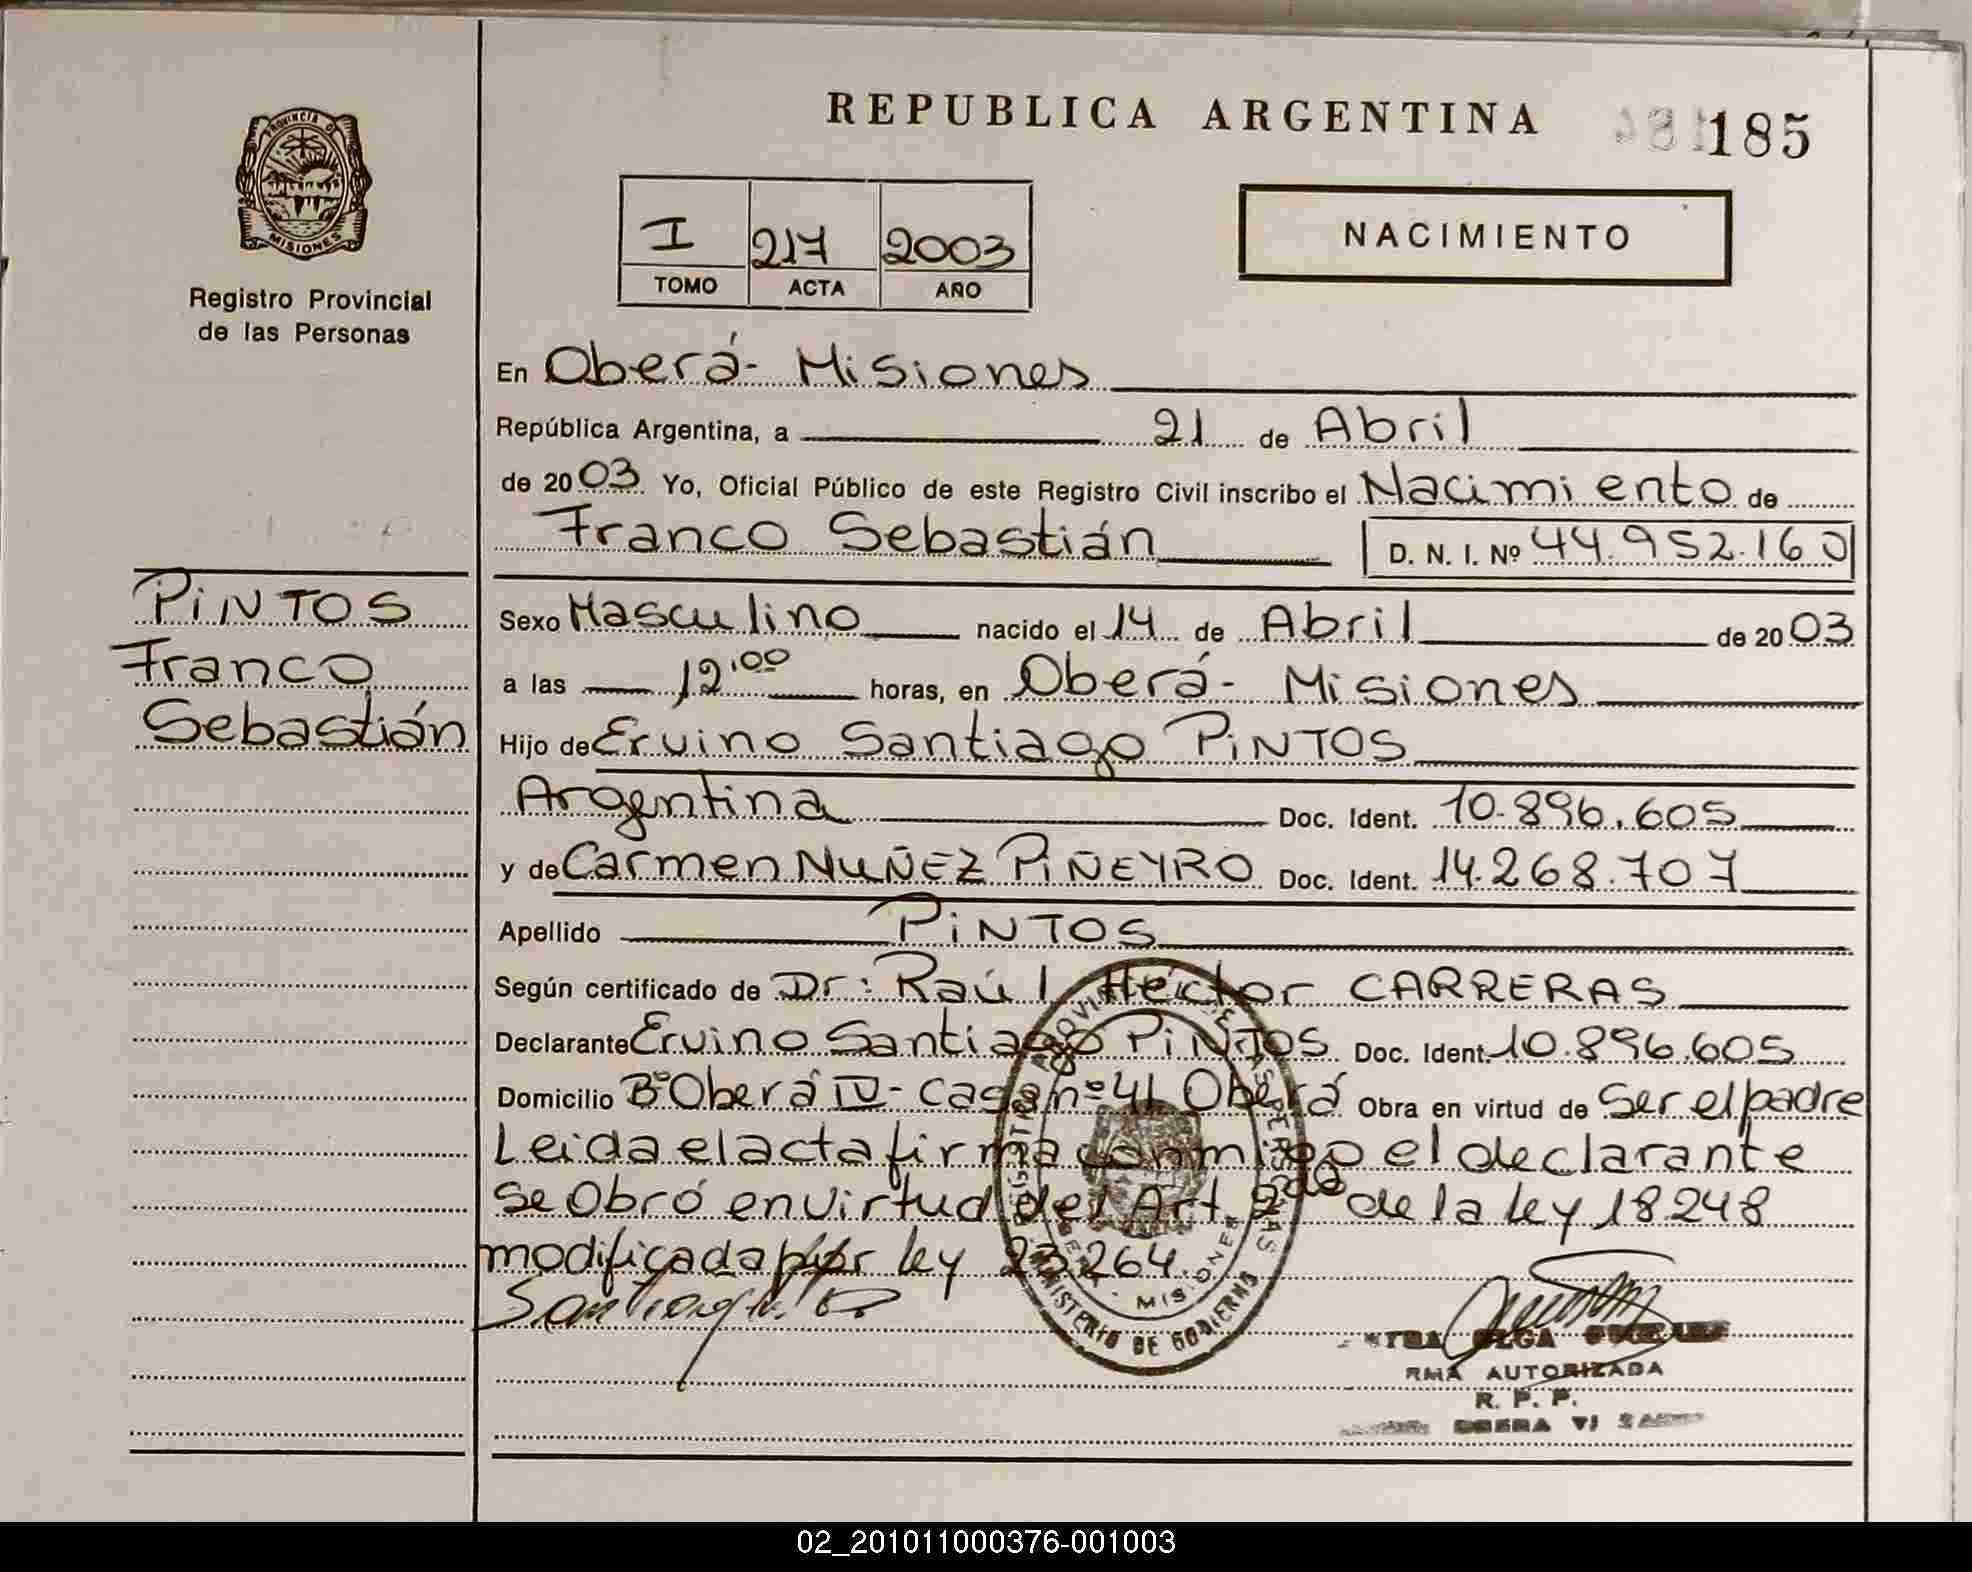 PROVINCIA DE
MISIONES
Registro Provincial
de las Personas
REPUBLICA ARGENTINA
185
I 217 2003
TOMO ACTA AÑO
NACIMIENTO
En Oberá - Misiones
República Argentina, a 21 de Abril
de 2003 Yo, Oficial Público de este Registro Civil inscribo el Nacimiento de
Franco Sebastián D. N. I. Nº 44.952.160
PINTOS
Franco
Sebastián
Sexo Masculino nacido el 14 de Abril de 2003
a las 12,00 horas, en Oberá - Misiones
Hijo de Ervino Santiago PINTOS
Argentina Doc. Ident. 10.896.605
y de Carmen NUÑEZ PIÑEYRO Doc. Ident. 14.268.707
Apellido PINTOS
Según certificado de Dr: Raúl Héctor CARRERAS
Declarante Ervino Santiago PINTOS Doc. Ident. 10.896.605
Domicilio Bº Oberá IV - Casa nº 41 Oberá Obra en virtud de Ser el padre
Leida el acta firma conmigo el declarante
Se Obró en virtud del Art. 2do de la ley 18248
modificada por ley 23.264.
MISIONES
MINISTERIO DE GOBIERNO
OLGA
RMA AUTORIZADA
R. P. P.
OBERA
02_201011000376-001003